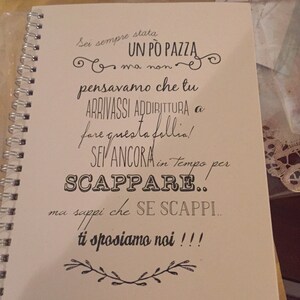 Sei sempre stata
UN PÒ PAZZA
ma non
pensavamo che tu
ARRIVASSI ADDIRITTURA a
fare questa follia!
SEI ANCORA in tempo per
SCAPPARE..
ma sappi che SE SCAPPI..
ti sposiamo noi !!!